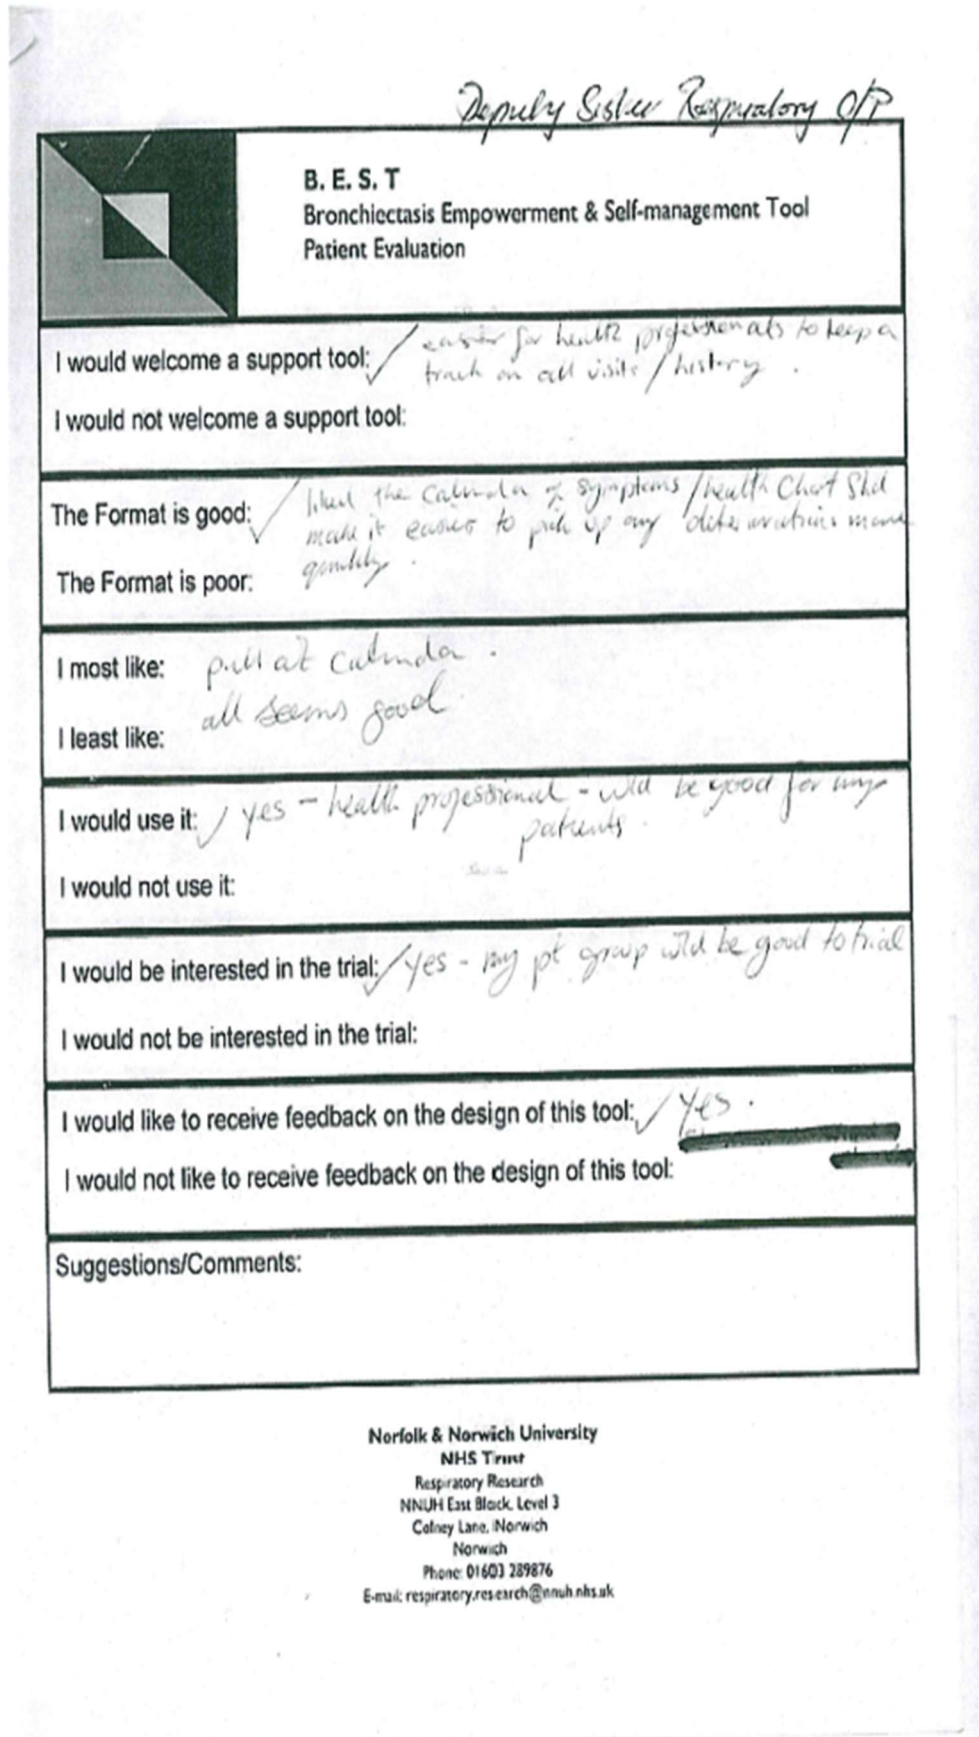 Deputy Sister Respiratory O/P
B. E. S. T
Bronchiectasis Empowerment & Self-management Tool
Patient Evaluation
I would welcome a support tool: ✓ easier for health professionals to keep a
track on all visits / history .
I would not welcome a support tool:
The Format is good: ✓ liked the Calendar of symptoms / health Chart Shd
make it easier to pick up any deteriorations more
quickly .
The Format is poor:
I most like: pull out Calendar .
all seems good
I least like:
I would use it: ✓ yes – health professional – wld be good for my
patients .
I would not use it:
I would be interested in the trial: ✓ yes - my pt group wld be good to trial
I would not be interested in the trial:
I would like to receive feedback on the design of this tool: ✓ Yes .
I would not like to receive feedback on the design of this tool:
Suggestions/Comments:
Norfolk & Norwich University
NHS Trust
Respiratory Research
NNUH East Block, Level 3
Colney Lane, Norwich
Norwich
Phone: 01603 289876
E-mail: respiratory.research@nnuh.nhs.uk